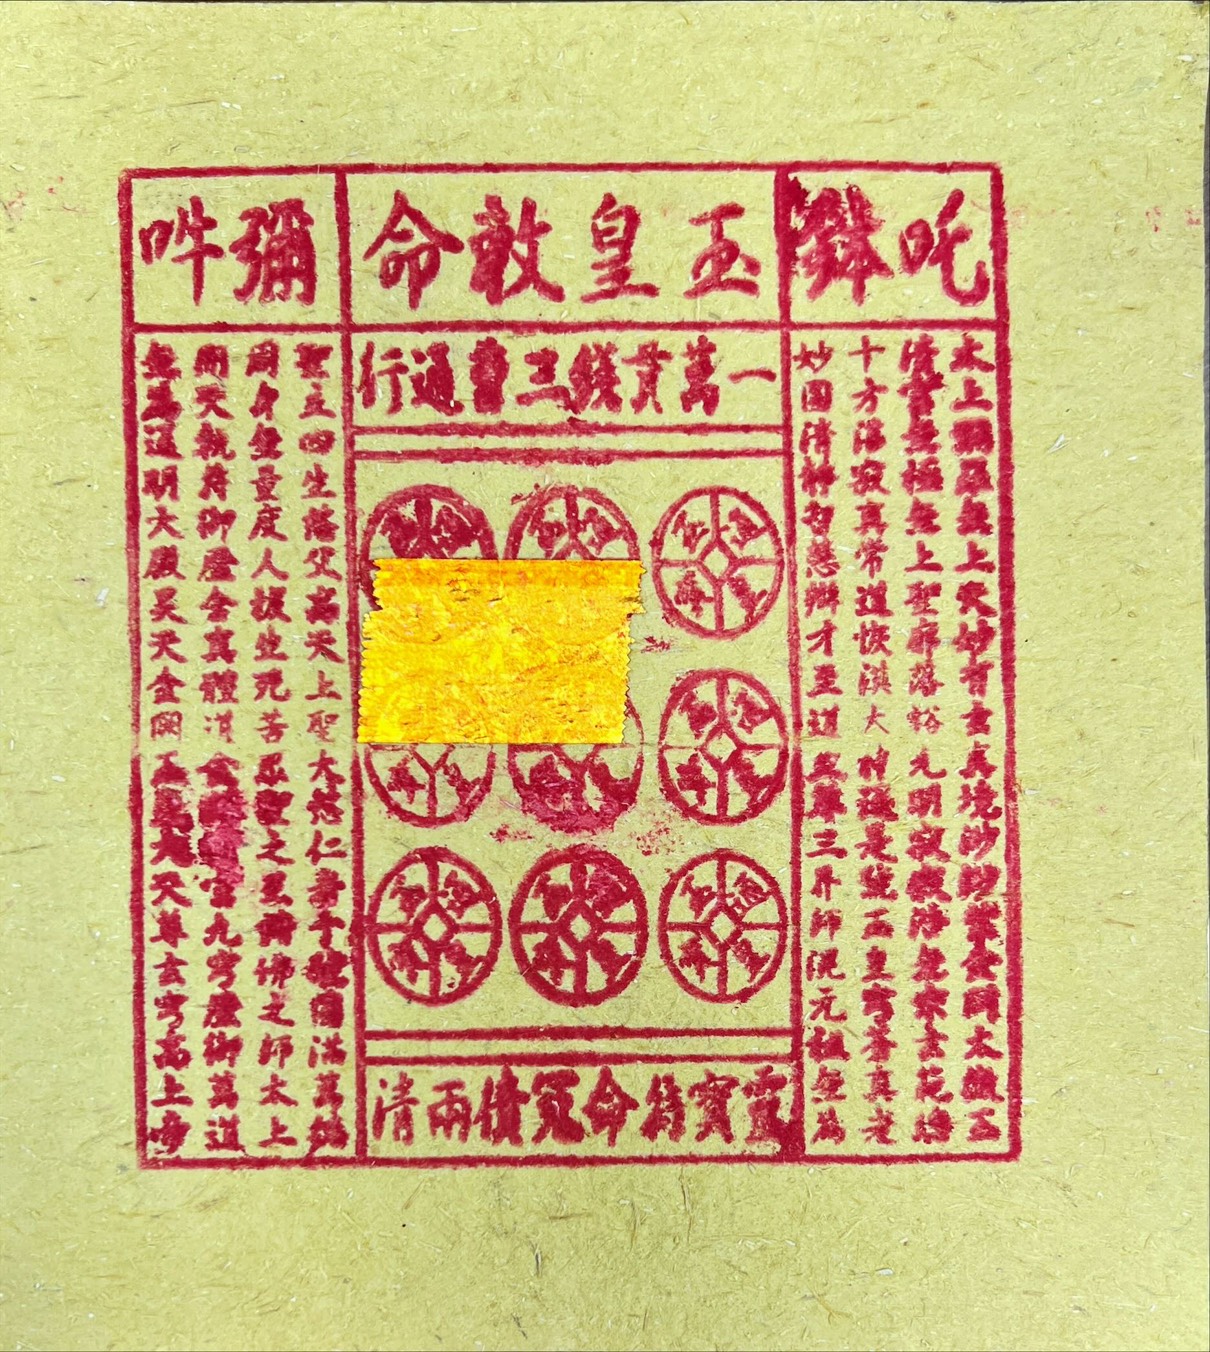 吒鉢
玉皇敕命
彌吽
一萬貫錢三曹通行
太上彌羅無上天妙有玄真境渺渺紫金闕太微玉
清宮無極無上聖廓落發光明寂寂浩無宗玄範總
十方湛寂真常道恢漠大神通是號玉皇穹蒼真老
妙圓清淨智慧辯才至道至尊三界師混元祖無為
聖主四生慈父高天上聖大慈仁者十號圓滿萬德
周身無量度人拔生死苦眾聖之王諸佛之師太上
開天執符御歷含真體道金闕雲宮九穹歷御萬道
無為通明大殿昊天金闕玉皇大天尊玄穹高上帝
靈寶符命冤債兩清